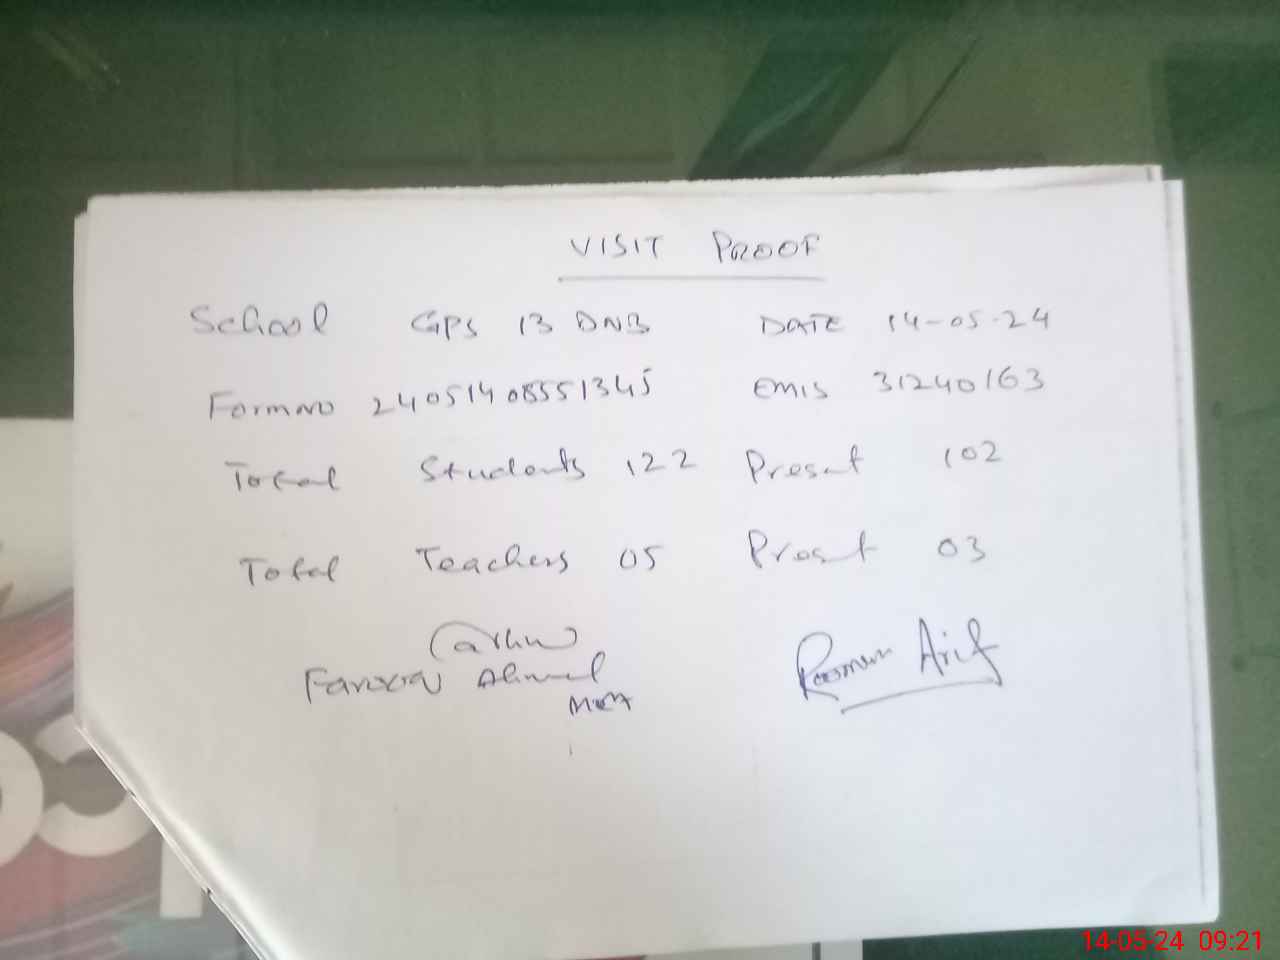 VISIT PROOF
School GPS 13 DNB DATE 14-05-24
Form no 240514085551345 EMIS 31240163
Total Students 122 Present 102
Total Teachers 05 Present 03
Farooq Ahmed
MEA
Arif
14-05-24 09:21